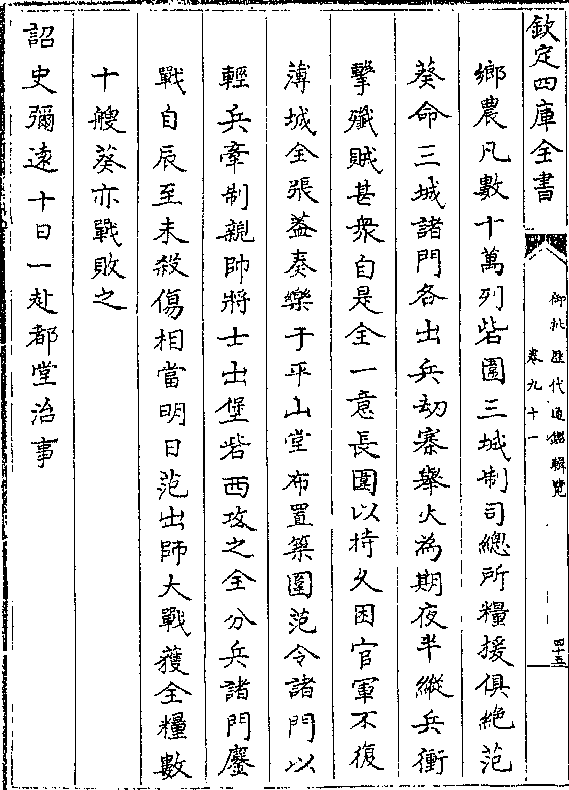 欽定四庫全書
御批歷代通鑑輯覽
卷九十一
四十五
鄉農凡數十萬列砦圍三城制司總所糧援俱絶范
葵命三城諸門各出兵劫寨舉火為期夜半縱兵衝
擊殲賊甚衆自是全一意長圍以持久困官軍不復
薄城全張蓋奏樂于平山堂布置築圍范令諸門以
輕兵牽制親帥將士出堡砦西攻之全分兵諸門鏖
戰自辰至未殺傷相當明日范出師大戰獲全糧數
十艘葵亦戰敗之
詔史彌遠十日一赴都堂治事